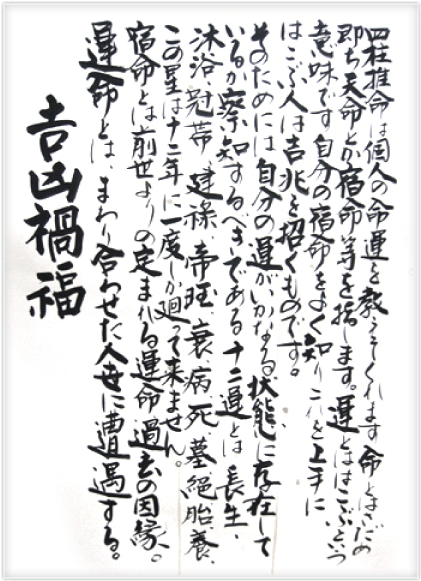 四柱推命は個人の命運を教えてくれます命とはさだめ
即ち天命とか宿命等を指します。運とははこぶという
意味です自分の宿命をよく知りこれを上手に
はこぶ人は吉兆を招くものです。
そのためには自分の運がいかなる状態に存在して
いるか察知するべきである十二運とは長生、
沐浴、冠帯、建禄、帝旺、衰病死墓絶胎養、
この星は十二年に一度しか廻って来ません。
宿命とは前世よりの定まれる運命過去の因縁。
運命とは、まわり合わせた人世に遭遇する。
吉凶禍福